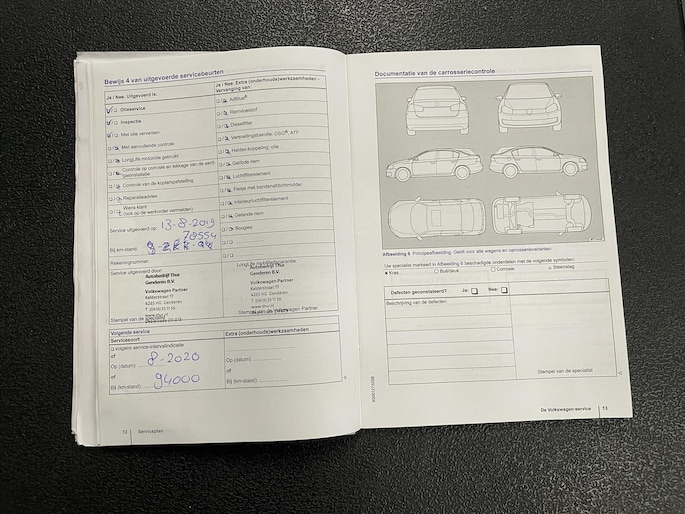 Bewijs 4 van uitgevoerde servicebeurten
Ja / Nee Uitgevoerd is:
Olieservice
Inspectie
Met olie verversen
Met aanvullende controle
LongLife motorolie gebruikt
Controle op corrosie en lekkage van de aard-
gasinstallatie
Controle van de koplampafstelling
Reparatieadvies
Wens klant
(ook op de werkorder vermelden)
Service uitgevoerd op: 13-8-2019
78554
Bij km-stand:
Rekeningnummer:
Service uitgevoerd door:
Autobedrijf Thur
Genderen B.V.
Volkswagen Partner
Kelderstraat 17
4265 HG Genderen
Stempel van de specialist
Ja / Nee Extra (onderhouds)werkzaamheden -
Vervanging van:
AdBlue®
Remvloeistof
Dieselfilter
Versnellingsbakolie: DSG®, ATF
Haldex-koppeling: olie
Geribde riem
Luchtfilterelement
Flesje met bandenafdichtmiddel
Interieurluchtfilterelement
Getande riem
Bougies
LongLife mobiliteitsgarantie
Autobedrijf Thur
Genderen B.V.
Volkswagen Partner
Kelderstraat 17
4265 HG Genderen
Stempel van de Volkswagen Partner
Volgende service
Servicesoort
volgens service-intervalindicatie
of
Op (datum): 8-2020
of
Bij (km-stand): 94000
Extra (onderhouds)werkzaamheden
Op (datum):
of
Bij (km-stand):
12 Serviceplan
Documentatie van de carrosseriecontrole
Afbeelding 6 Principeafbeelding. Geldt voor alle wagens en carrosserievarianten
Uw specialist markeert in Afbeelding 6 beschadigde onderdelen met de volgende symbolen:
× Kras ○ Buil/deuk □ Corrosie △ Steenslag
Defecten geconstateerd? Ja: Nee:
Beschrijving van de defecten:
Stempel van de specialist
De Volkswagen-service 13